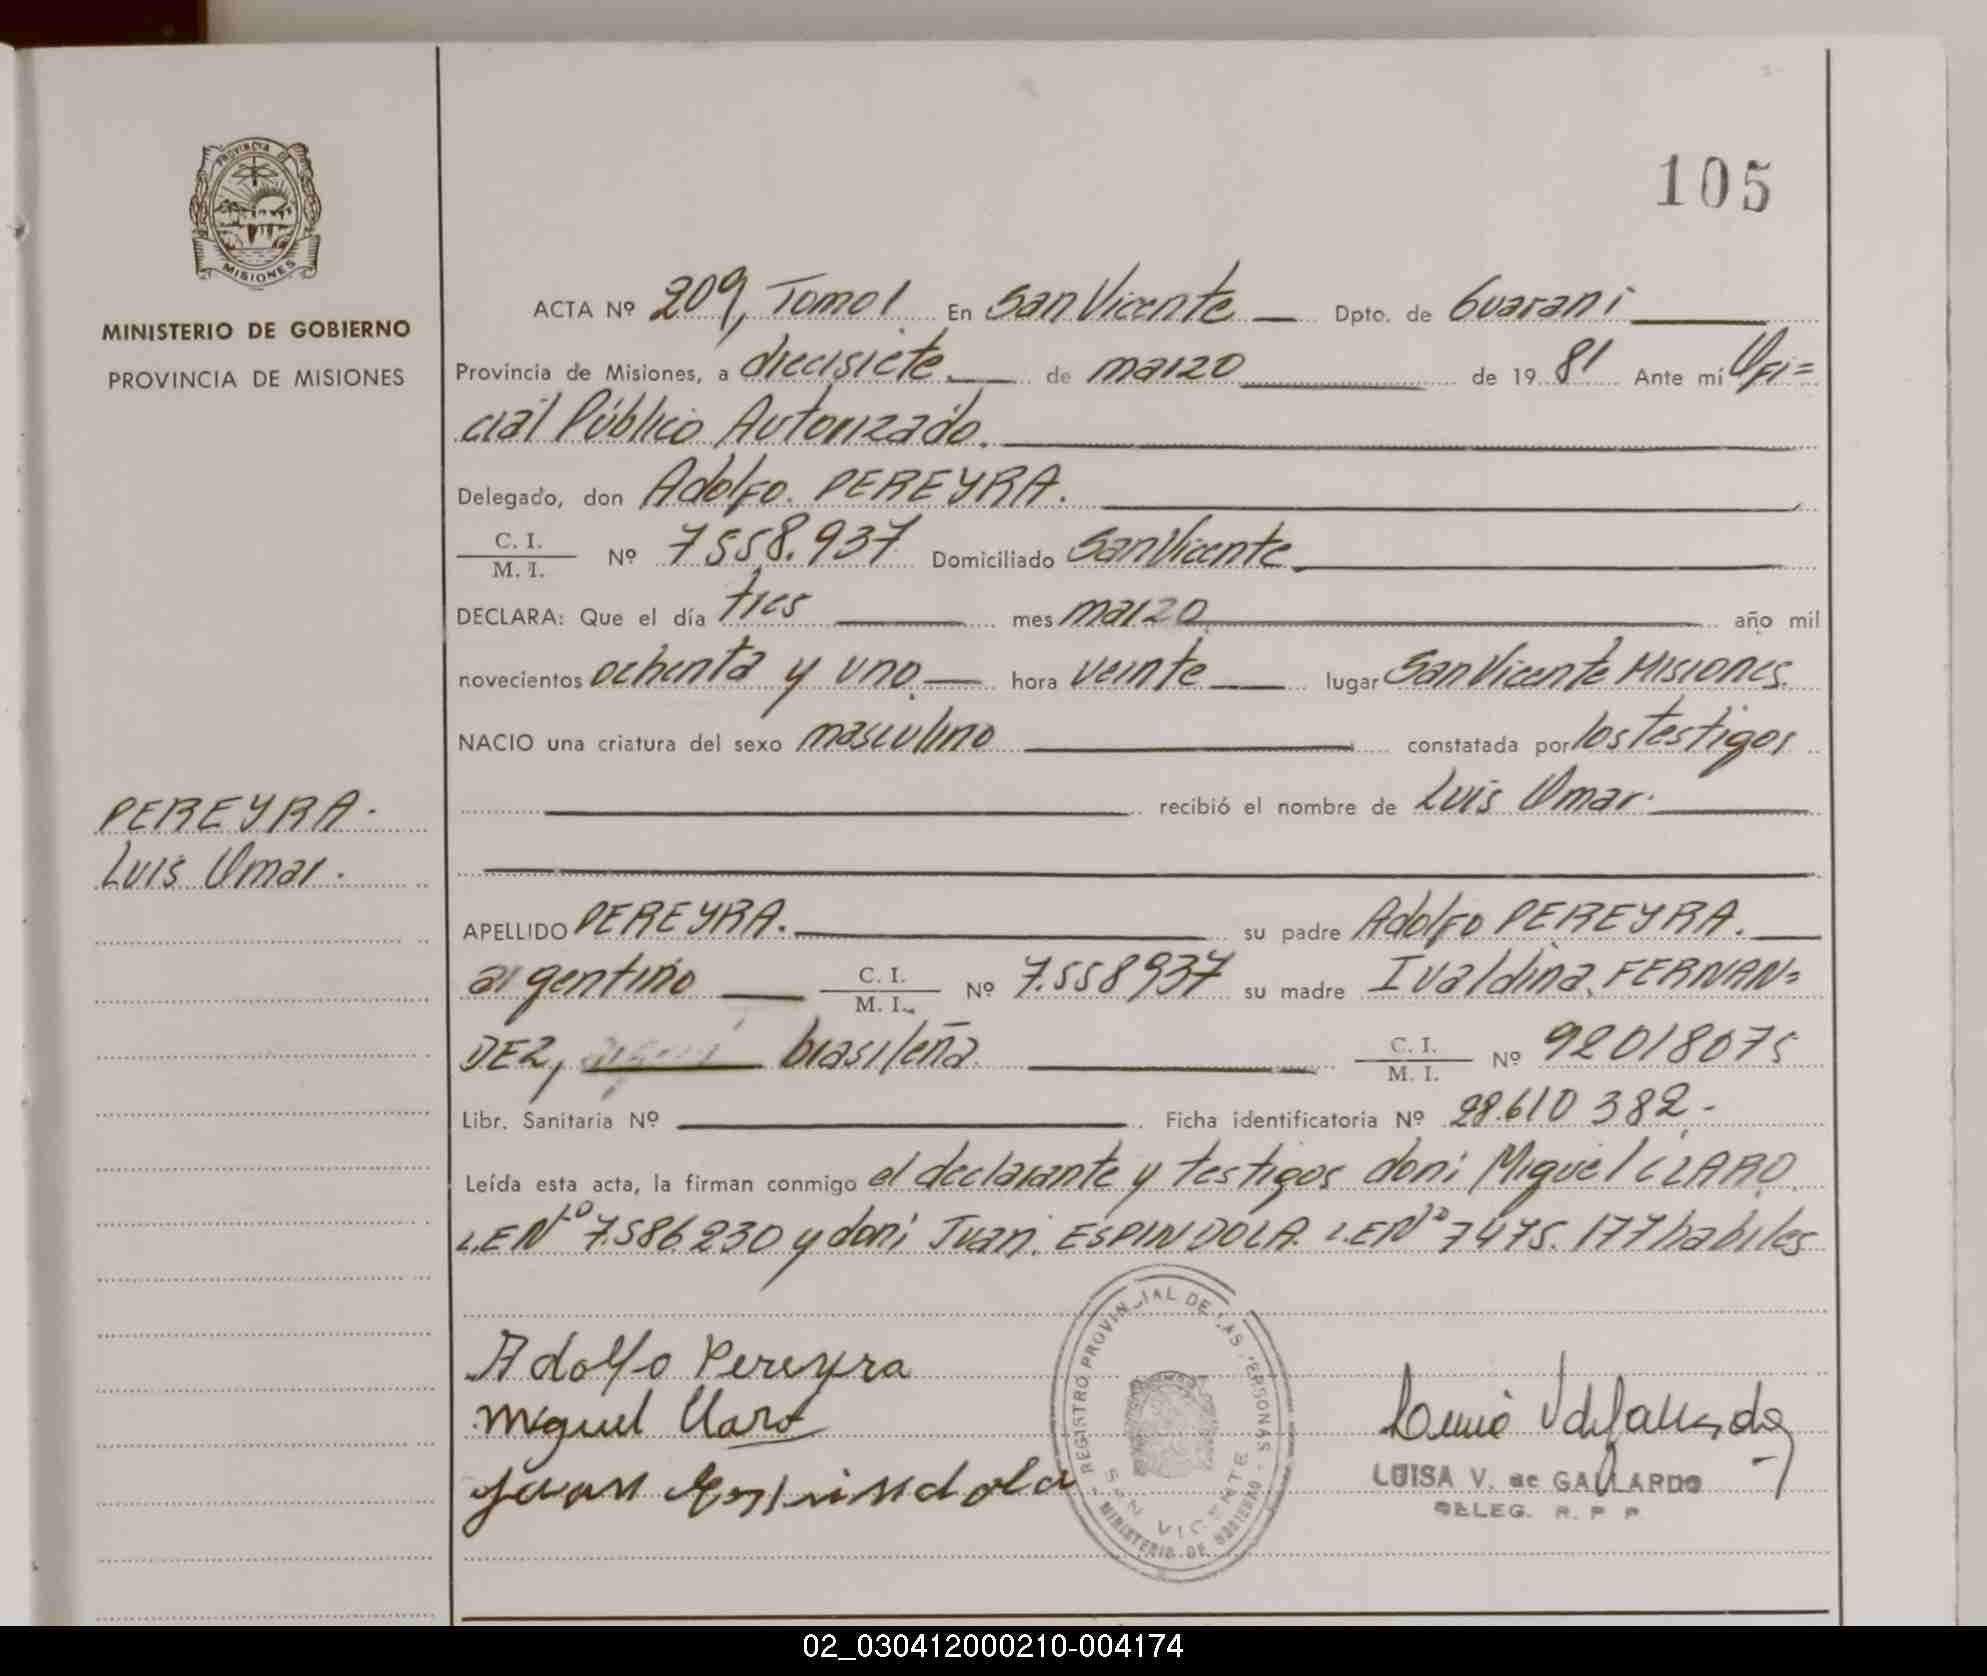 105
PROVINCIA DE
MISIONES
MINISTERIO DE GOBIERNO
PROVINCIA DE MISIONES
ACTA Nº 209, Tomo I. En San Vicente Dpto. de Guarani
Provincia de Misiones, a diecisiete de marzo de 19 81 Ante mí Ofi=
cial Público Autorizado.
Delegado, don Adolfo. PEREYRA.
C. I. / M. I. Nº 7558.937 Domiciliado San Vicente
DECLARA: Que el día tres mes marzo año mil
novecientos ochenta y uno hora veinte lugar San Vicente Misiones.
NACIO una criatura del sexo masculino constatada por los testigos
recibió el nombre de Luis Omar.
PEREYRA.
Luis Omar.
APELLIDO PEREYRA. su padre Adolfo PEREYRA.
argentino C. I. / M. I. Nº 7.558937 su madre Ivaldina. FERNAN=
DEZ, brasileña. C. I. / M. I. Nº 92018075
Libr. Sanitaria Nº Ficha identificatoria Nº 28.610 382.-
Leída esta acta, la firman conmigo el declarante y testigos don: Miguel CLARO.
L.E Nº 7.586.230 y don: Juan. ESPINDOLA. L.E Nº 7475.177 habiles
Adolfo Pereyra
Miguel Claro
Juan Espindola
REGISTRO PROVINCIAL DE LAS PERSONAS
SAN VICENTE
MINISTERIO DE GOBIERNO
LUISA V. de GALLARDO
DELEG. R. P. P.
02_030412000210-004174